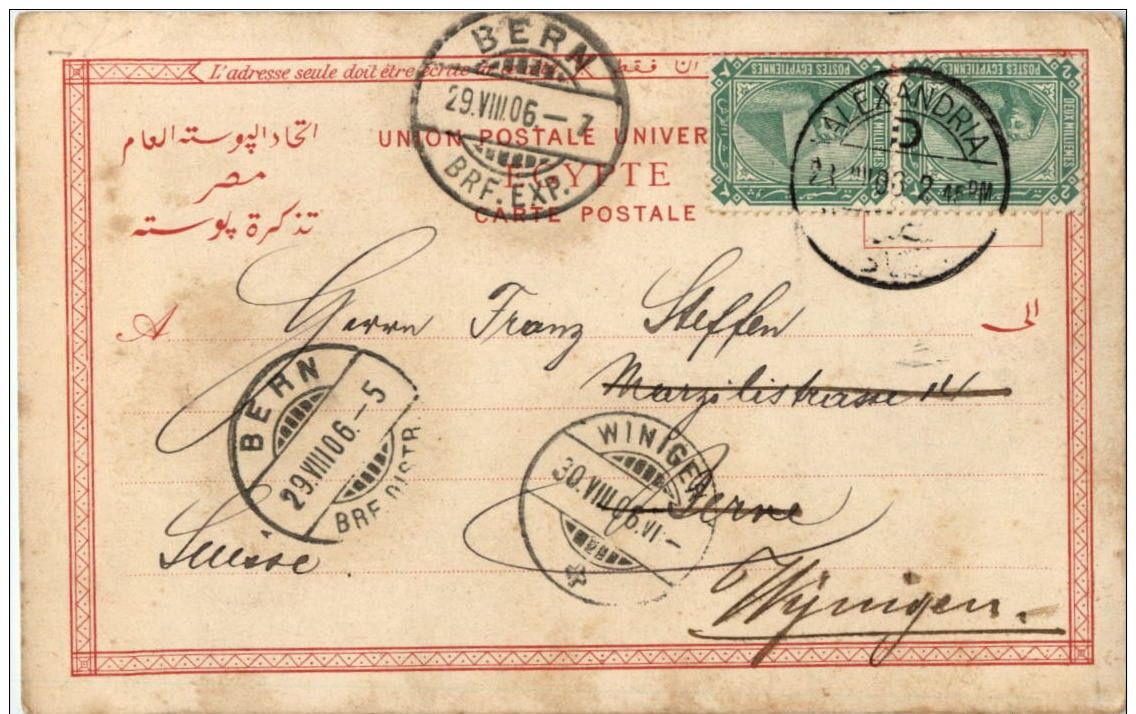 L'adresse seule doit être écrite
ان فقط
BERN
29.VIII.06.–7
BRF. EXP.
POSTES EGYPTIENNES
DEUX MILLIEMES
2
POSTES EGYPTIENNES
DEUX MILLIEMES
2
ALEXANDRIA
D
2 45 PM
اتحاد الپوسته العام
مصر
تذكرة پوسته
UNION POSTALE UNIVER
EGYPTE
CARTE POSTALE
A
الى
Herrn Franz Steffen
Marzilistrasse 14
BERN
29.VIII.06.–5
BRF. DISTR.
WINIGEN
30.VIII.06.VI–
Berne
Suisse
Wynigen.